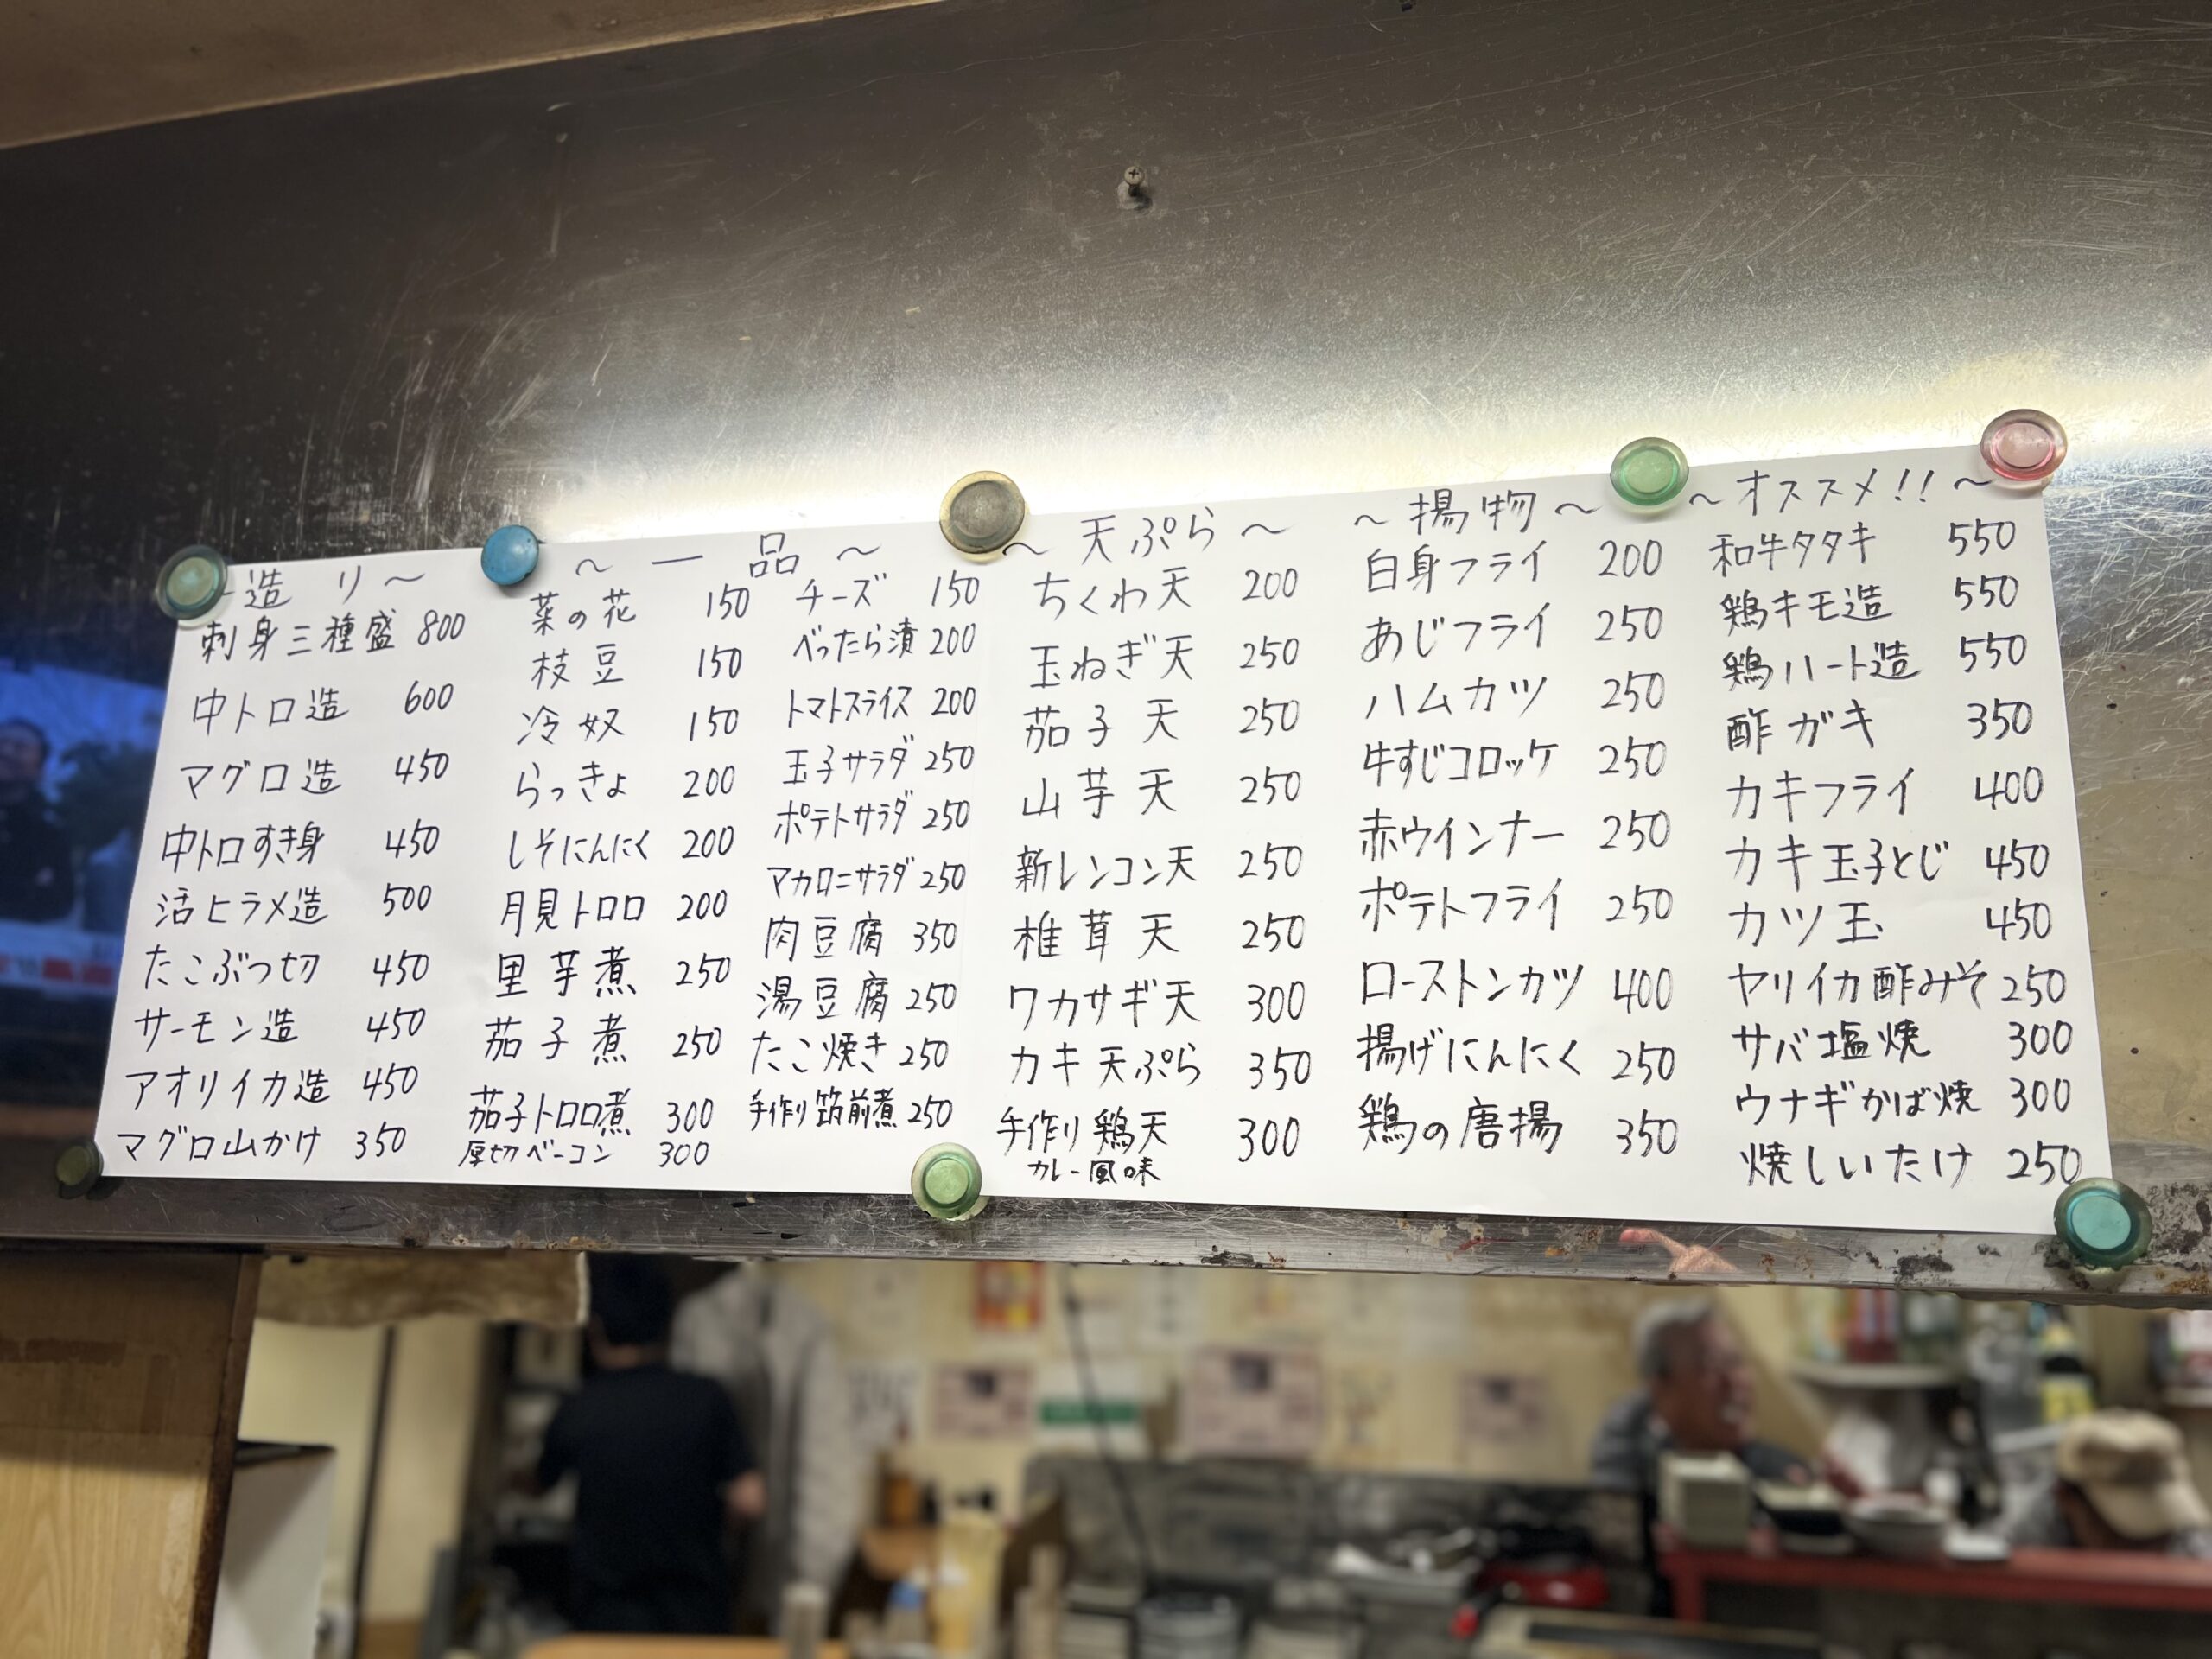 造り～
刺身三種盛 800
中トロ造 600
マグロ造 450
中トロすき身 450
活ヒラメ造 500
たこぶつ切 450
サーモン造 450
アオリイカ造 450
マグロ山かけ 350
～一品～
菜の花 150
枝豆 150
冷奴 150
らっきょ 200
しそにんにく 200
月見トロロ 200
里芋煮 250
茄子煮 250
茄子トロロ煮 300
厚切ベーコン 300
チーズ 150
べったら漬 200
トマトスライス 200
玉子サラダ 250
ポテトサラダ 250
マカロニサラダ 250
肉豆腐 350
湯豆腐 250
たこ焼き 250
手作り筑前煮 250
～天ぷら～
ちくわ天 200
玉ねぎ天 250
茄子天 250
山芋天 250
新レンコン天 250
椎茸天 250
ワカサギ天 300
カキ天ぷら 350
手作り鶏天 300
カレー風味
～揚物～
白身フライ 200
あじフライ 250
ハムカツ 250
牛すじコロッケ 250
赤ウインナー 250
ポテトフライ 250
ローストンカツ 400
揚げにんにく 250
鶏の唐揚 350
～オススメ!!～
和牛タタキ 550
鶏キモ造 550
鶏ハート造 550
酢ガキ 350
カキフライ 400
カキ玉子とじ 450
カツ玉 450
ヤリイカ酢みそ 250
サバ塩焼 300
ウナギかば焼 300
焼しいたけ 250